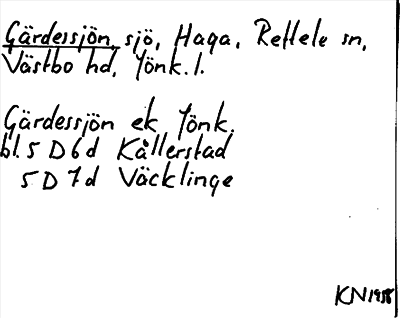 Gärdessjön, sjö, Haga, Reftele sn,
Västbo hd, Jönk. l.
Gärdessjön ek Jönk.
bl. 5 D 6 d Kållerstad
5 D 7 d Väcklinge
KN 1958